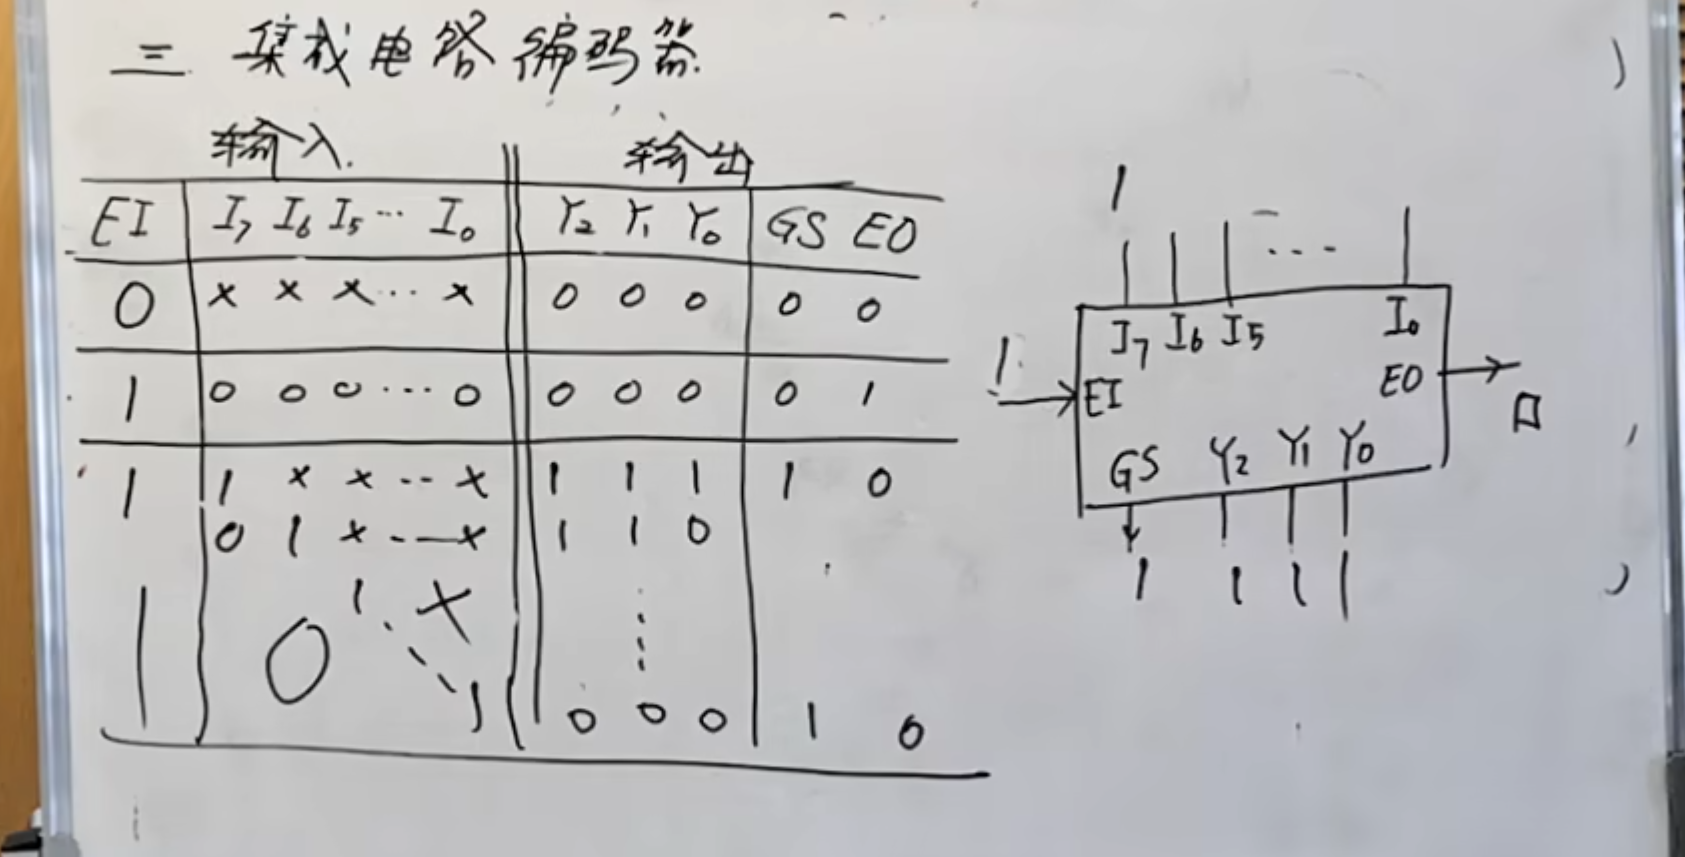 三 集成电路编码器.
输入. 输出
EI I₇ I₆ I₅ ··· I₀ Y₂ Y₁ Y₀ GS EO
0 × × × ··· × 0 0 0 0 0
1 0 0 0 ··· 0 0 0 0 0 1
1 1 × × ·· × 1 1 1 1 0
0 1 × ·-- × 1 1 0
1 0 1 ×
1 0 0 0 1 0
1
I₇ I₆ I₅ ··· I₀
1 EI EO 0
GS Y₂ Y₁ Y₀
1 1 1 1